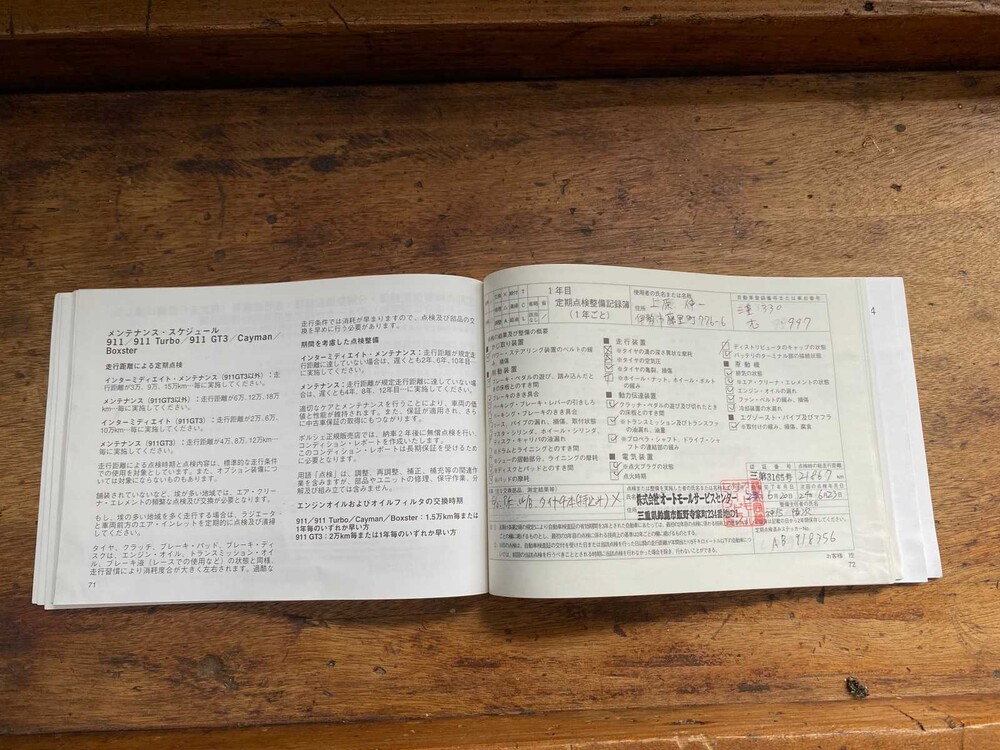 メンテナンス・スケジュール
911/911 Turbo/911 GT3/Cayman/
Boxster
走行距離による定期点検
インターミディエイト・メンテナンス(911GT3以外):走
行距離が3万、9万、15万km…毎に実施してください。
メンテナンス(911GT3以外):走行距離が6万、12万、18万
km…毎に実施してください。
インターミディエイト(911GT3):走行距離が2万、6万、
10万km…毎に実施してください。
メンテナンス(911GT3):走行距離が4万、8万、12万km…
毎に実施してください。
走行距離による点検時期と点検内容は、標準的な走行条件
での使用を対象としています。また、オプション装備につ
いては対象にならないものもあります。
舗装されていないなど、埃が多い地域では、エア・クリー
ナ・エレメントの頻繁な点検及び交換が必要となります。
もし、埃の多い地域を多く走行する場合は、ラジエータ
と車両前方のエア・インレットを定期的に点検及び清掃
してください。
タイヤ、クラッチ、ブレーキ・パッド、ブレーキ・ディ
スクは、エンジン・オイル、トランスミッション・オイ
ル、ブレーキ液(レースでの使用など)の状態と同様、
走行習慣により消耗度合が大きく左右されます。過酷な
71
走行条件では消耗が早まりますので、点検及び部品の交
換を早めに行う必要があります。
期間を考慮した点検整備
インターミディエイト・メンテナンス:走行距離が規定走
行距離に達していない場合は、遅くとも2年、6年、10年目…
に実施してください。
メンテナンス:走行距離が規定走行距離に達していない場
合は、遅くとも4年、8年、12年目…に実施してください。
適切なケアとメンテナンスを行うことにより、車両の価
値と性能が維持されます。また、保証が適用され、さら
に中古車保証の取得にもつながります。
ポルシェ正規販売店では、納車2年後に無償点検を行い、
コンディション・レポートを作成いたします。
このコンディション・レポートは長期保証を受けるため
に必要となります。
用語「点検」は、調整、再調整、補正、補充等の関連作
業を含みますが、部品やユニットの修理、保守作業、分
解及び組み立ては含みません。
エンジンオイルおよびオイルフィルタの交換時期
911/911 Turbo/Cayman/Boxster:1.5万km毎または
1年毎のいずれか早い方
911 GT3:2万km毎または1年毎のいずれか早い方
1年目
定期点検整備記録簿
(1年ごと)
使用者の氏名または名称
住所
自動車登録番号または車両番号
330
997
点検の結果及び整備の概要
かじ取り装置
パワー・ステアリング装置のベルトの緩
み、損傷
制動装置
ブレーキ・ペダルの遊び、踏み込んだと
きの床板とのすき間
ブレーキのきき具合
パーキング・ブレーキ・レバーの引きしろ
パーキング・ブレーキのきき具合
ホース、パイプの漏れ、損傷、取付状態
マスタ・シリンダ、ホイール・シリンダ、
ディスク・キャリパの液漏れ
ドラムとライニングとのすき間
シューの摺動部分、ライニングの摩耗
ディスクとパッドとのすき間
パッドの摩耗
■ 走行装置
※タイヤの溝の深さ異状な摩耗
※タイヤの空気圧
※タイヤの亀裂、損傷
※ホイール・ナット、ホイール・ボルト
の緩み
■ 動力伝達装置
クラッチ・ペダルの遊び及び切れたとき
の床板とのすき間
※トランスミッション及びトランスファ
の油漏れ、油量
※プロペラ・シャフト、ドライブ・シャ
フトの連結部の緩み
■ 電気装置
※点火プラグの状態
点火時期
ディストリビュータのキャップの状態
バッテリのターミナル部の接続状態
■ 原動機
排気の状態
※エア・クリーナ・エレメントの状態
エンジン・オイルの漏れ
ファン・ベルトの緩み、損傷
冷却装置の水漏れ
■ エグゾースト・パイプ及びマフラ
※取付けの緩み、損傷、腐食
認証番号
点検時の総走行距離
三第3165号
21867
km
株式会社オートモールサービスセンター
三重県鈴鹿市飯野寺家町234番地の1
お客様 控
72
4